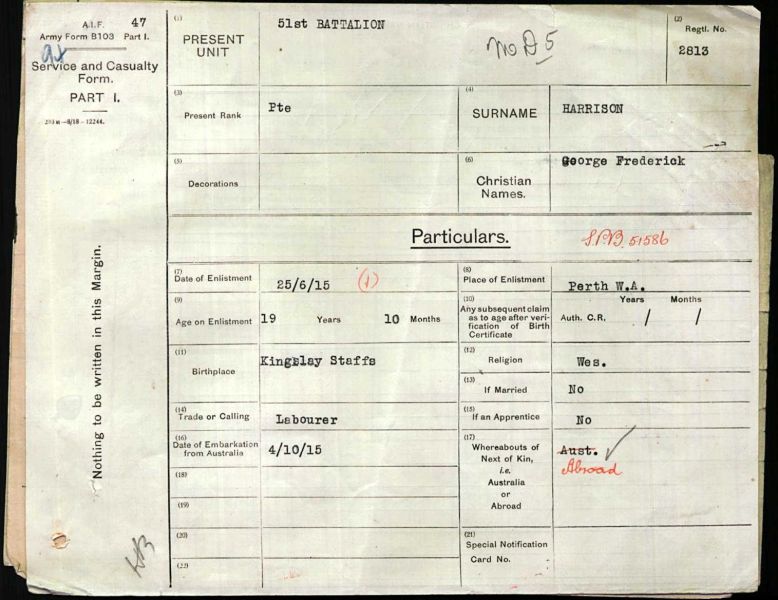 A.I.F. 47
Army Form B103 Part I.
Service and Casualty
Form.
PART I.
Nothing to be written in this Margin.
(1)
PRESENT
UNIT
51st BATTALION
No D 5
(2)
Regtl. No.
2813
(3)
Present Rank
Pte
(4)
SURNAME
HARRISON
(5)
Decorations
(6)
Christian
Names.
George Frederick
Particulars.
51586
(7)
Date of Enlistment
25/6/15 (1)
(8)
Place of Enlistment
Perth W.A.
(9)
Age on Enlistment
19 Years 10 Months
(10)
Any subsequent claim
as to age after veri-
fication of Birth
Certificate
Years Months
Auth. C.R. / /
(11)
Birthplace
Kingslay Staffs
(12)
Religion
Wes.
(13)
If Married
No
(14)
Trade or Calling
Labourer
(15)
If an Apprentice
No
(16)
Date of Embarkation
from Australia
4/10/15
(17)
Whereabouts of
Next of Kin,
i.e.
Australia
or
Abroad
Aust.
Abroad
(18)
(19)
(20)
(21)
Special Notification
Card No.
(22)